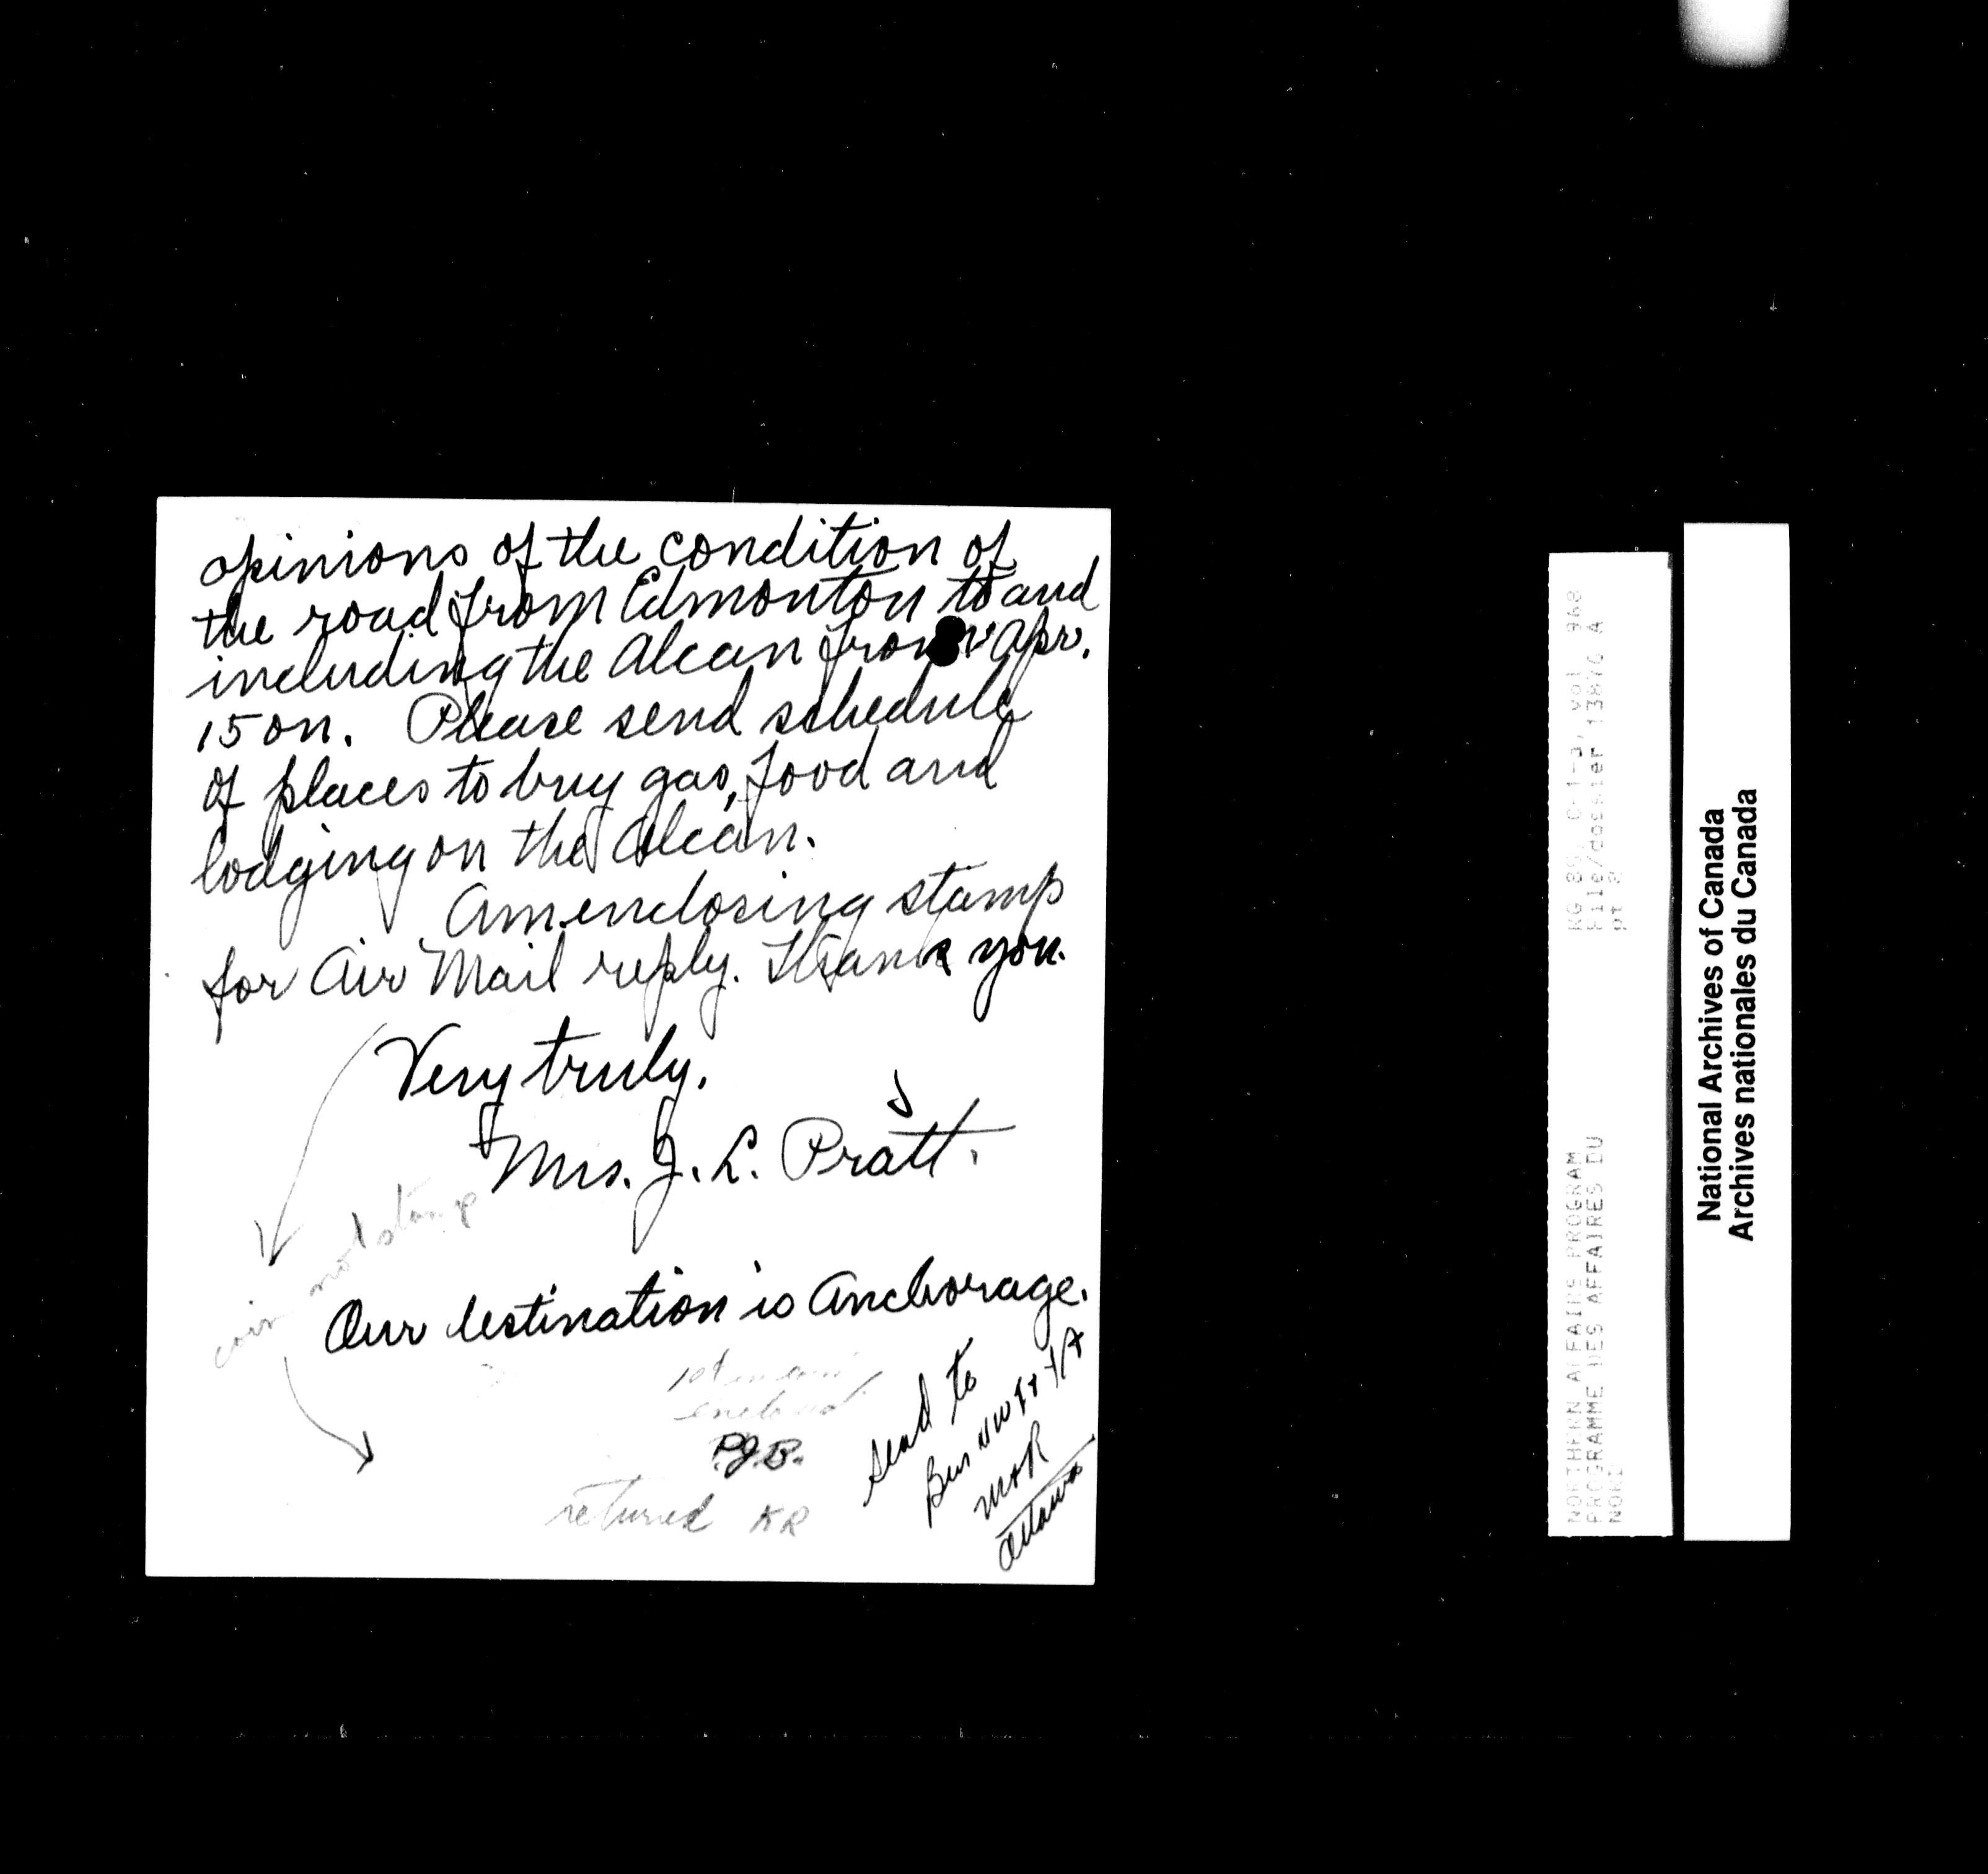 opinions of the condition of
the road from Edmonton to and
including the Alcan from Apr.
15 on. Please send schedule
of places to buy gas, food and
lodging on the Alcan.
Am enclosing stamp
for Air Mail reply. Thank you.
Very truly,
Mrs. J. L. Pratt.
air mail stamp
Our destination is Anchorage.
enclosed
P.J.B.
returned KR
Send to
Bur NWT & YA
M & R
Ottawa
RG 85, C-1-a, vol 968
File/dossier 13876 A
pt 2
NORTHERN AFFAIRS PROGRAM
PROGRAMME DES AFFAIRES DU
NORD
National Archives of Canada
Archives nationales du Canada